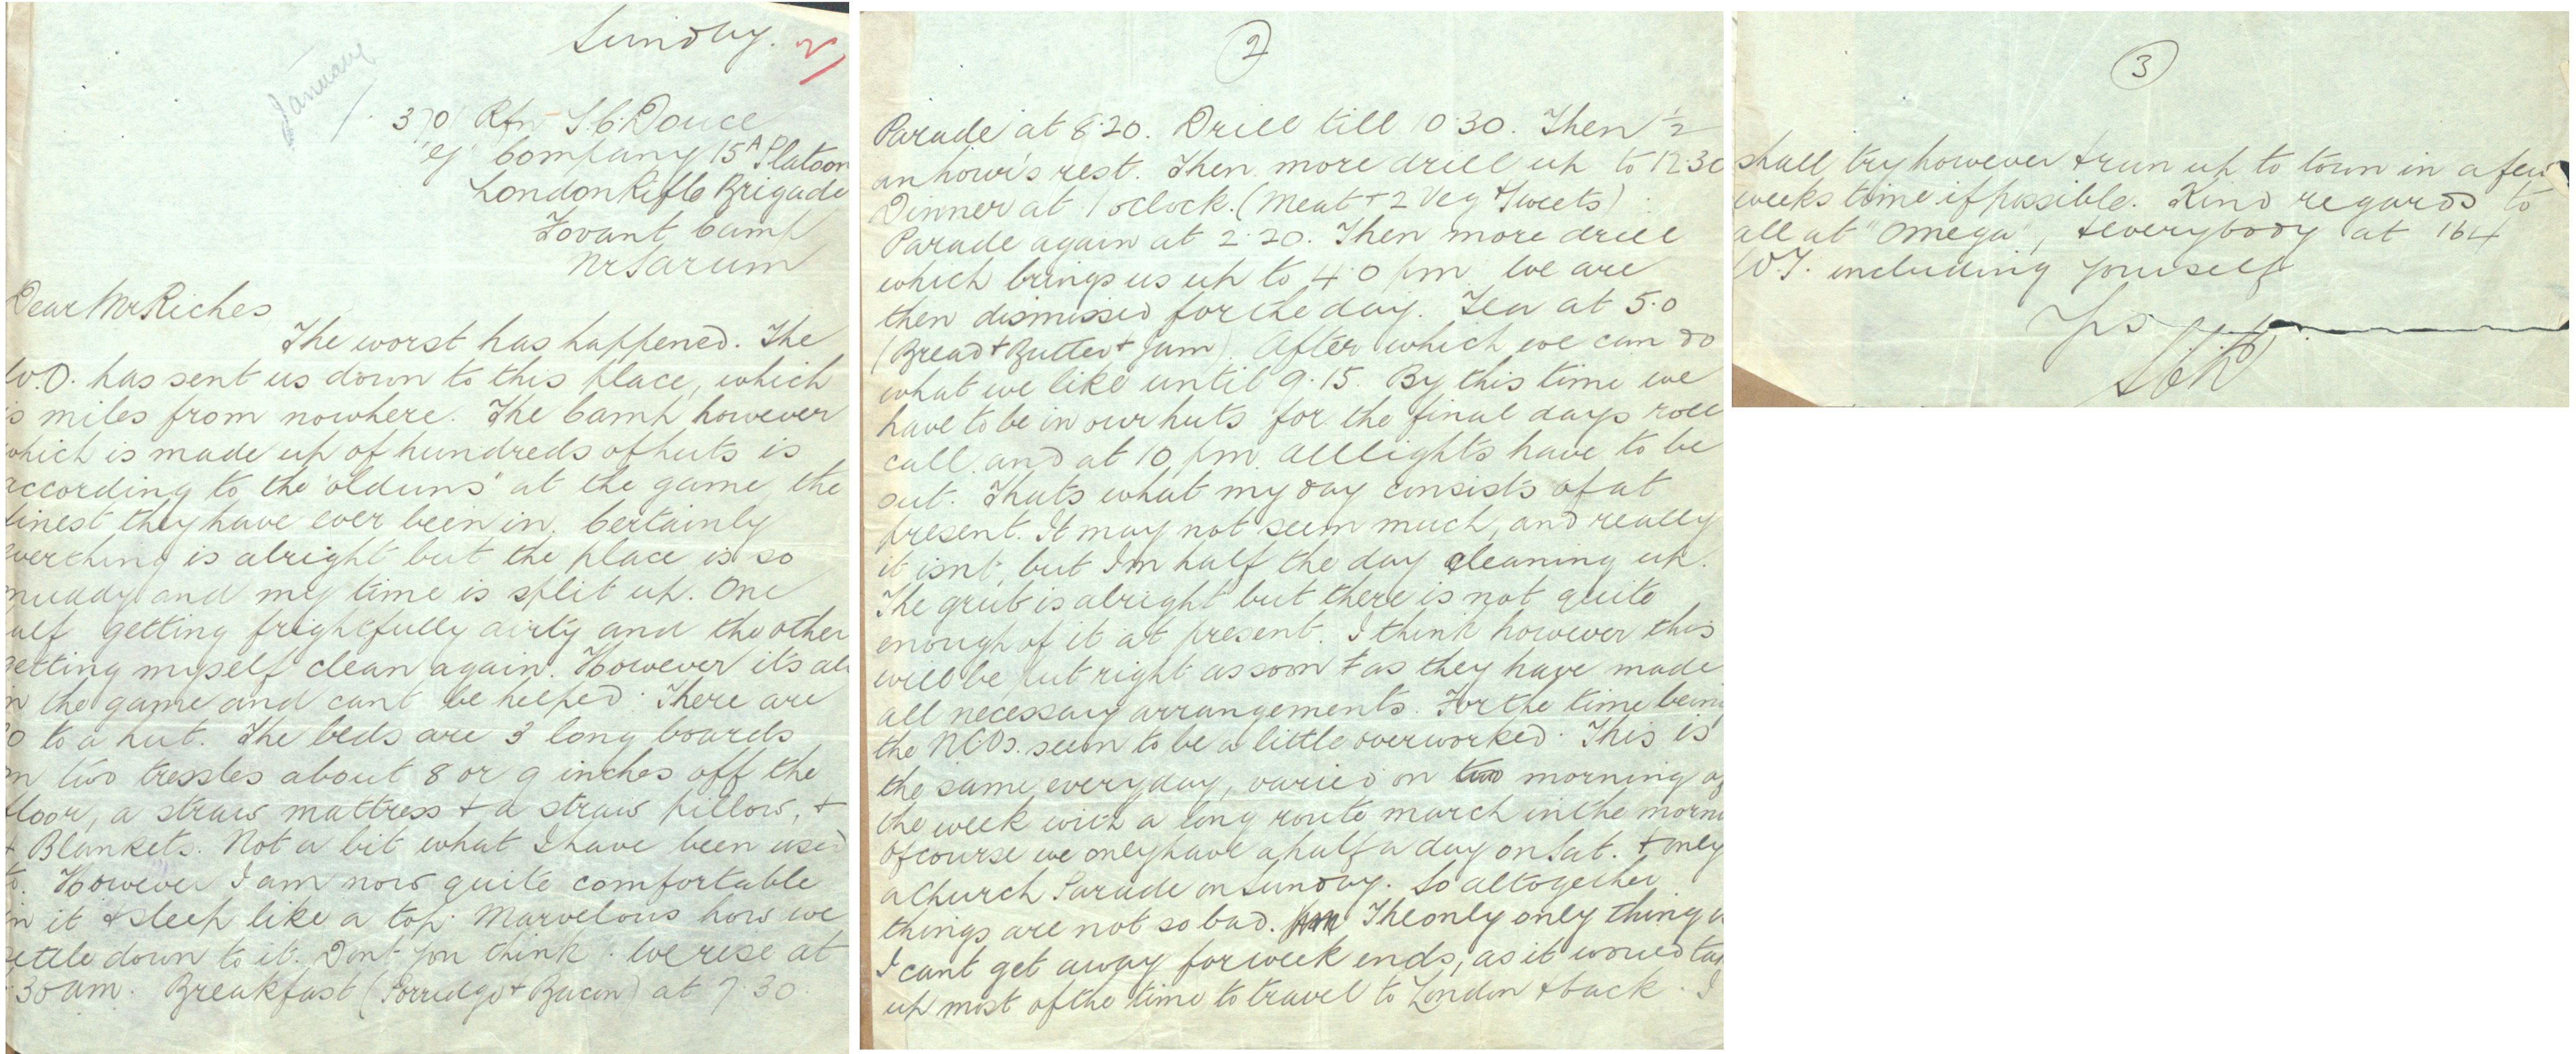 Sunday. 2/
January
370 Rfn S.C. Douce
'G' Company 15A Platoon
London Rifle Brigade
Fovant Camp
Nr Sarum
Dear Mr Riches
The worst has happened. The
W.O. has sent us down to this place, which
is miles from nowhere. The Camp however
which is made up of hundreds of huts is
according to the 'olduns' at the game the
finest they have ever been in. Certainly
everthing is alright but the place is so
muddy and my time is split up. One
half getting frightfully dirty and the other
getting myself clean again. However its all
in the game and cant be helped. There are
to a hut. The beds are 3 long boards
on two tressles about 8 or 9 inches off the
floor, a straw mattress + a straw pillow, +
Blankets. Not a bit what I have been used
to. However I am now quite comfortable
in it + sleep like a top. Marvelous how we
settle down to it. Dont you think. We rise at
30 am. Breakfast (Porridge + Bacon) at 7.30.
2
Parade at 8.20. Drill till 10.30. Then ½
an hour's rest. Then more drill up to 12.30
Dinner at 1 oclock. (Meat + 2 Veg + Sweets).
Parade again at 2.20. Then more drill
which brings us up to 4.0 pm. We are
then dismissed for the day. Tea at 5.0
(Bread + Butter + Jam). After which we can do
what we like until 9.15. By this time we
have to be in our huts for the final days roll
call and at 10 pm. all lights have to be
out. Thats what my day consists of at
present. It may not seem much, and really
it isnt, but Im half the day cleaning up.
The grub is alright but there is not quite
enough of it at present. I think however this
will be put right as soon + as they have made
all necessary arrangements. For the time being
the NCOs. seem to be a little overworked. This is
the same everyday, varied on two morning of
the week with a long route march in the morn
of course we only have a half a day on Sat. + only
a Church Parade on Sunday. So altogether
things are not so bad. The only only thing is
I cant get away for week ends, as it would take
up most of the time to travel to London + back. I
3
shall try however + run up to town in a few
weeks time if possible. Kind regards to
all at "Omega", + everybody at 164
W.T. including yourself
Yrs
SCD